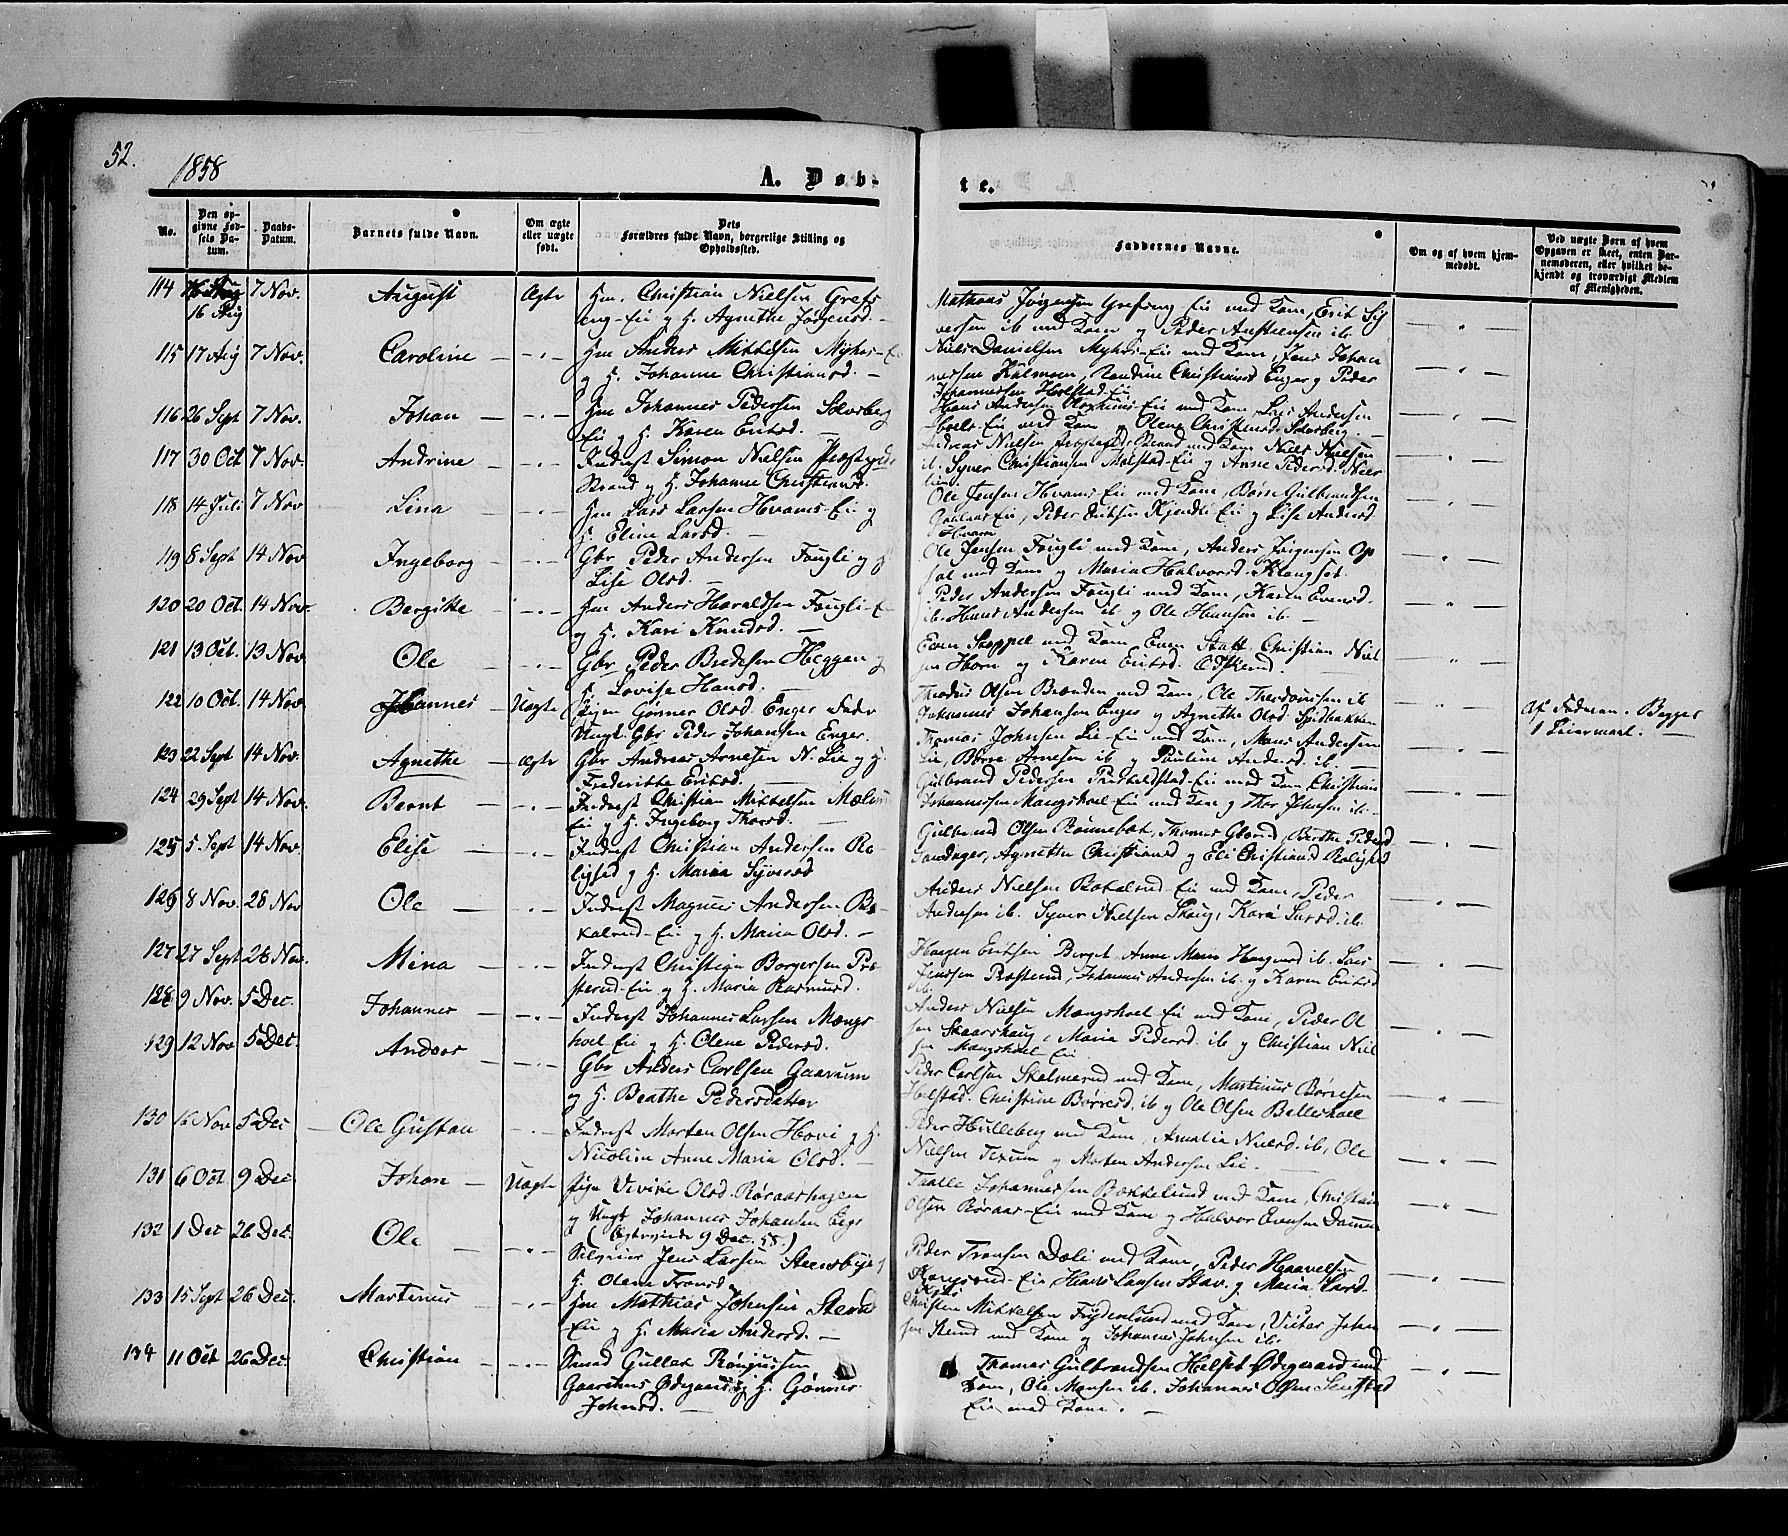 52.
1858
A. Døb-
te.
No.
Den op-
givne Fød-
sels Da-
tum.
Daabs-
Datum.
Barnets fulde Navn.
Om ægte
eller uægte
født.
Dets
Forældres fulde Navn, borgerlige Stilling og
Opholdssted.
Faddernes Navne.
Om og af hvem hjem-
medøbt.
Ved uægte Børn af hvem
Opgaven er skeet, enten Bar-
nemoderen, eller hvilket be-
kjendt og troværdigt Medlem
af Menigheden.
114 16 Aug 7 Nov. August Ægte Hm. Christian Nielsen Grefs
eng-Eie og H. Agnethe Jørgensd.
Mathias Jørgensen Grefseng Eie med Kone, Erik Sy
versen ib med Kone og Peder Anstensen ib
115 17 Aug 7 Nov. Caroline Hm Anders Mikkelsen Myhre-Ei
og H. Johanne Christiansd.
Niels Danielsen Myhre-Eie med Kone, Jens Johan
nessen Kalmoen, Christiansd Enger og Peder
Johannessen Holstad Eie
116 26 Sept 7 Nov. Johan Hm Johannes Pedersen Solsberg
Eie og H. Karen Eriksd.
Hans Andersen Eie med Kone, Lars Andersen
Eie med Kone og Olene Christensd Solsberg
117 30 Oct 7 Nov. Andrine Inderst Simon Nielsen Præstegrds
Strand og H. Johanne Christiansd.
Andreas Nielsen Strand med Kone Niels Nielsen
ib. Syver Christiansen Molstad-Eie og Anne Pedersd. Niels
118 14 Juli 7 Nov Lina Hm Lars Larsen Hvams-Eie og
H. Eline Larsd.
Ole Jensen Hvams Eie med Kone, Børre Gulbrandsen
Eie, Peder Eriksen Kjendli Eie og Lise Andersd
Hvam
119 8 Sept 14 Nov Ingeborg Gbr Peder Andersen Fougli og H
Lise Olsd.
Ole Jensen Fougli med Kone, Anders Jørgensen Op
sal med Kone og Maria Halvorsd. Klongset.
120 20 Oct. 14 Nov. Bergitte Hm Anders Haraldsen Fougli-Ei
og H. Kari Knudsd.
Peder Andersen Fougli med Kone, Karen Evensd.
ib. Hans Andersen ib og Ole Hansen ib.
121 13 Oct. 13 Nov Ole Gbr Peder Bredesen Heggen og
H. Lovise Hansd.
Even Stoppel med Kone, Even Statt Christian Niel
sen Horn og Karen Eriksd.
122 10 Oct. 14 Nov Johannes Uægte Pigen Gønner Olsd. Enger Fader
Ungk. Gbr Peder Johansen Enger.
Theodor Olsen Brænden med Kone, Ole Theodorsen ib
Johannes Johansen Enger og Agnethe Olsd. Spidbakken
Af Faderen. Begges
1 Leiermaal.
123 22 Sept 14 Nov. Agnethe Ægte Gbr Andreas Arnesen N. Lie og H.
Frederikke Eriksd.
Thomas Johnsen Lie-Eie med Kone, Hans Andersen
Lie, Børre Arnesen ib og Pauline Andersd. ib
124 29 Sept 14 Nov. Bernt Inderst Christian Mikkelsen Mælum
Eie og H. Ingeborg Thorsd.
Gulbrand Pedersen Eie med Kone, Christian
Johannessen Mangskoel Eie med Kone og Thor Johnsen ib.
125 5. Sept 14 Nov. Elise Inderst Christian Andersen Ro-
lighed og H. Maria Syversd
Gulbrand Olsen Rønnebæk, Thomas, Berthe Pedersd
Sandager, Agnethe Christiansd og Eli Christiansd Rolighed
126 8 Nov. 28 Nov Ole Inderst Magnus Andersen Bo-
kalrud-Eie og H. Maria Olsd.
Anders Nielsen Bokalrud-Eie med Kone, Peder
Andersen ib. Syver Nielsen Skaug, Kari Larsd. ib.
127 27 Sept 28 Nov. Mina Inderst Christian Borgersen Pro-
sterud-Eie og H. Maria Rasmusd.
Haagen Eriksen Berget Anne Marie Haagensd ib. Lars
Jenssen Prosterud, Johannes Andersen ib. og Karen Eriksd
ib.
128 9 Nov. 5 Dec. Johannes Inderst Johannes Larsen Mangs
koel Eie og H. Olene Pedersd.
Anders Nielsen Mangskoel Eie med Kone, Peder Ol
sen Skaarshaug, Maria Pedersd. ib og Christian Niel
sen Mangskoel Eie
129 12 Nov 5 Dec. Anders Gbr Anders Carlsen Gaarum
og H. Beathe Pedersdatter
Peder Carlsen Skelmerud med Kone, Martinus Børresen
Holstad. Christine Børresd. ib og Ole Olsen Balleskoel
130 16 Nov 5 Dec Ole Gustav Inderst Morten Olsen Hovi og H.
Nicoline Anne Maria Olsd.
Peder Hulleberg med Kone, Amalia Nielsd. ib, Ole
Nielsen Texum og Morten Andersen Lie
131 6 Oct 9 Dec Johan Uægte Pige Vivike Olsd. Røraashagen
og Ungk Johannes Johansen Eege
(Ægteviede 9 Dec. 58.)
Taalle Johannessen Bækkelund med Kone, Christian
Olsen Røraas-Eie med Kone og Halvor Evensen Dammen
132 1 Dec 26 Dec. Ole Selveier Jens Larsen Steensbye og
H. Olene Tronsd.
Peder Tronsen Dæli med Kone, Peder Haavelsen
Kongsrud-Eie Hans Larsen Stav. og Maria Larsd.
133 15 Sept 26 Dec. Martinus Hm Mathias Johnsen Stend
Eie og H. Maria Andersd.
Christen Mikkelsen Frydenlund med Kone, Victor Johan
sen Stend med Kone og Johannes Johnsen ib.
134 11 Oct 26 Dec Christian Smed Gullak Røngussen
Gaardens Ødegaard og H. Gønner
Johnsd.
Thomas Gulbrandsen Helset Ødegaard med
Kone, Ole Monsen ib. Johannes Olsen Seigstad
Eie med Kone.